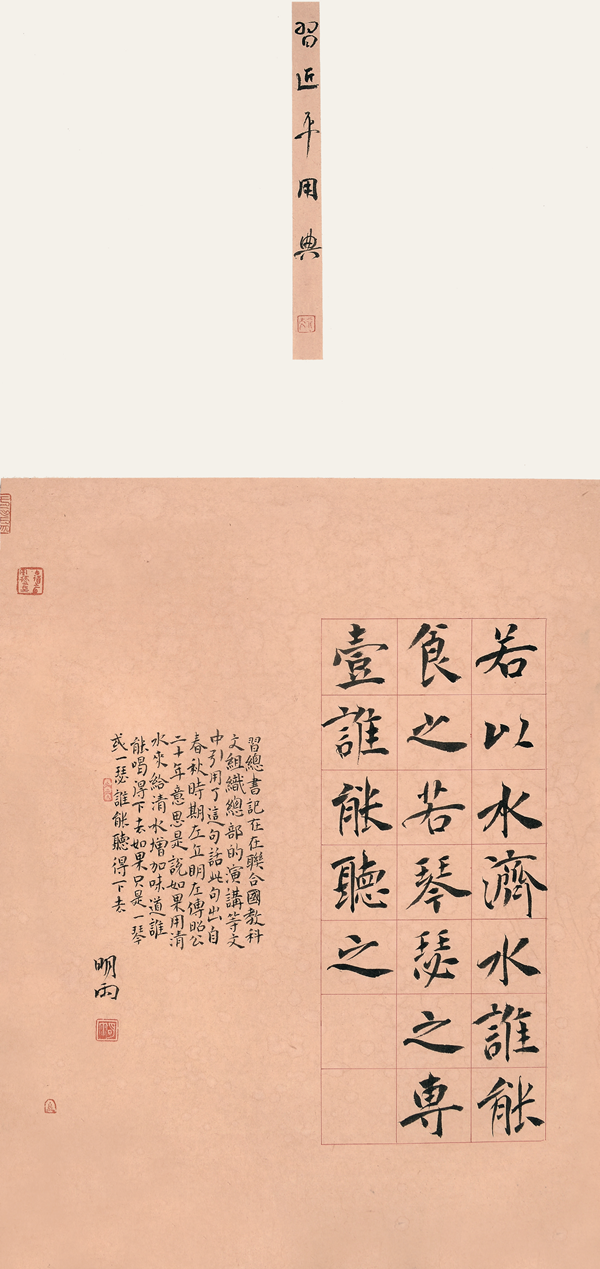 習近平用典
若以水濟水誰能
食之若琴瑟之專
壹誰能聽之
習總書記在在聯合國教科
文組織總部的演講等文
中引用了這句話此句出自
春秋時期左丘明左傳昭公
二十年意思是說如果用清
水來給清水增加味道誰
能喝得下去如果只是一琴
或一瑟誰能聽得下去
明雨